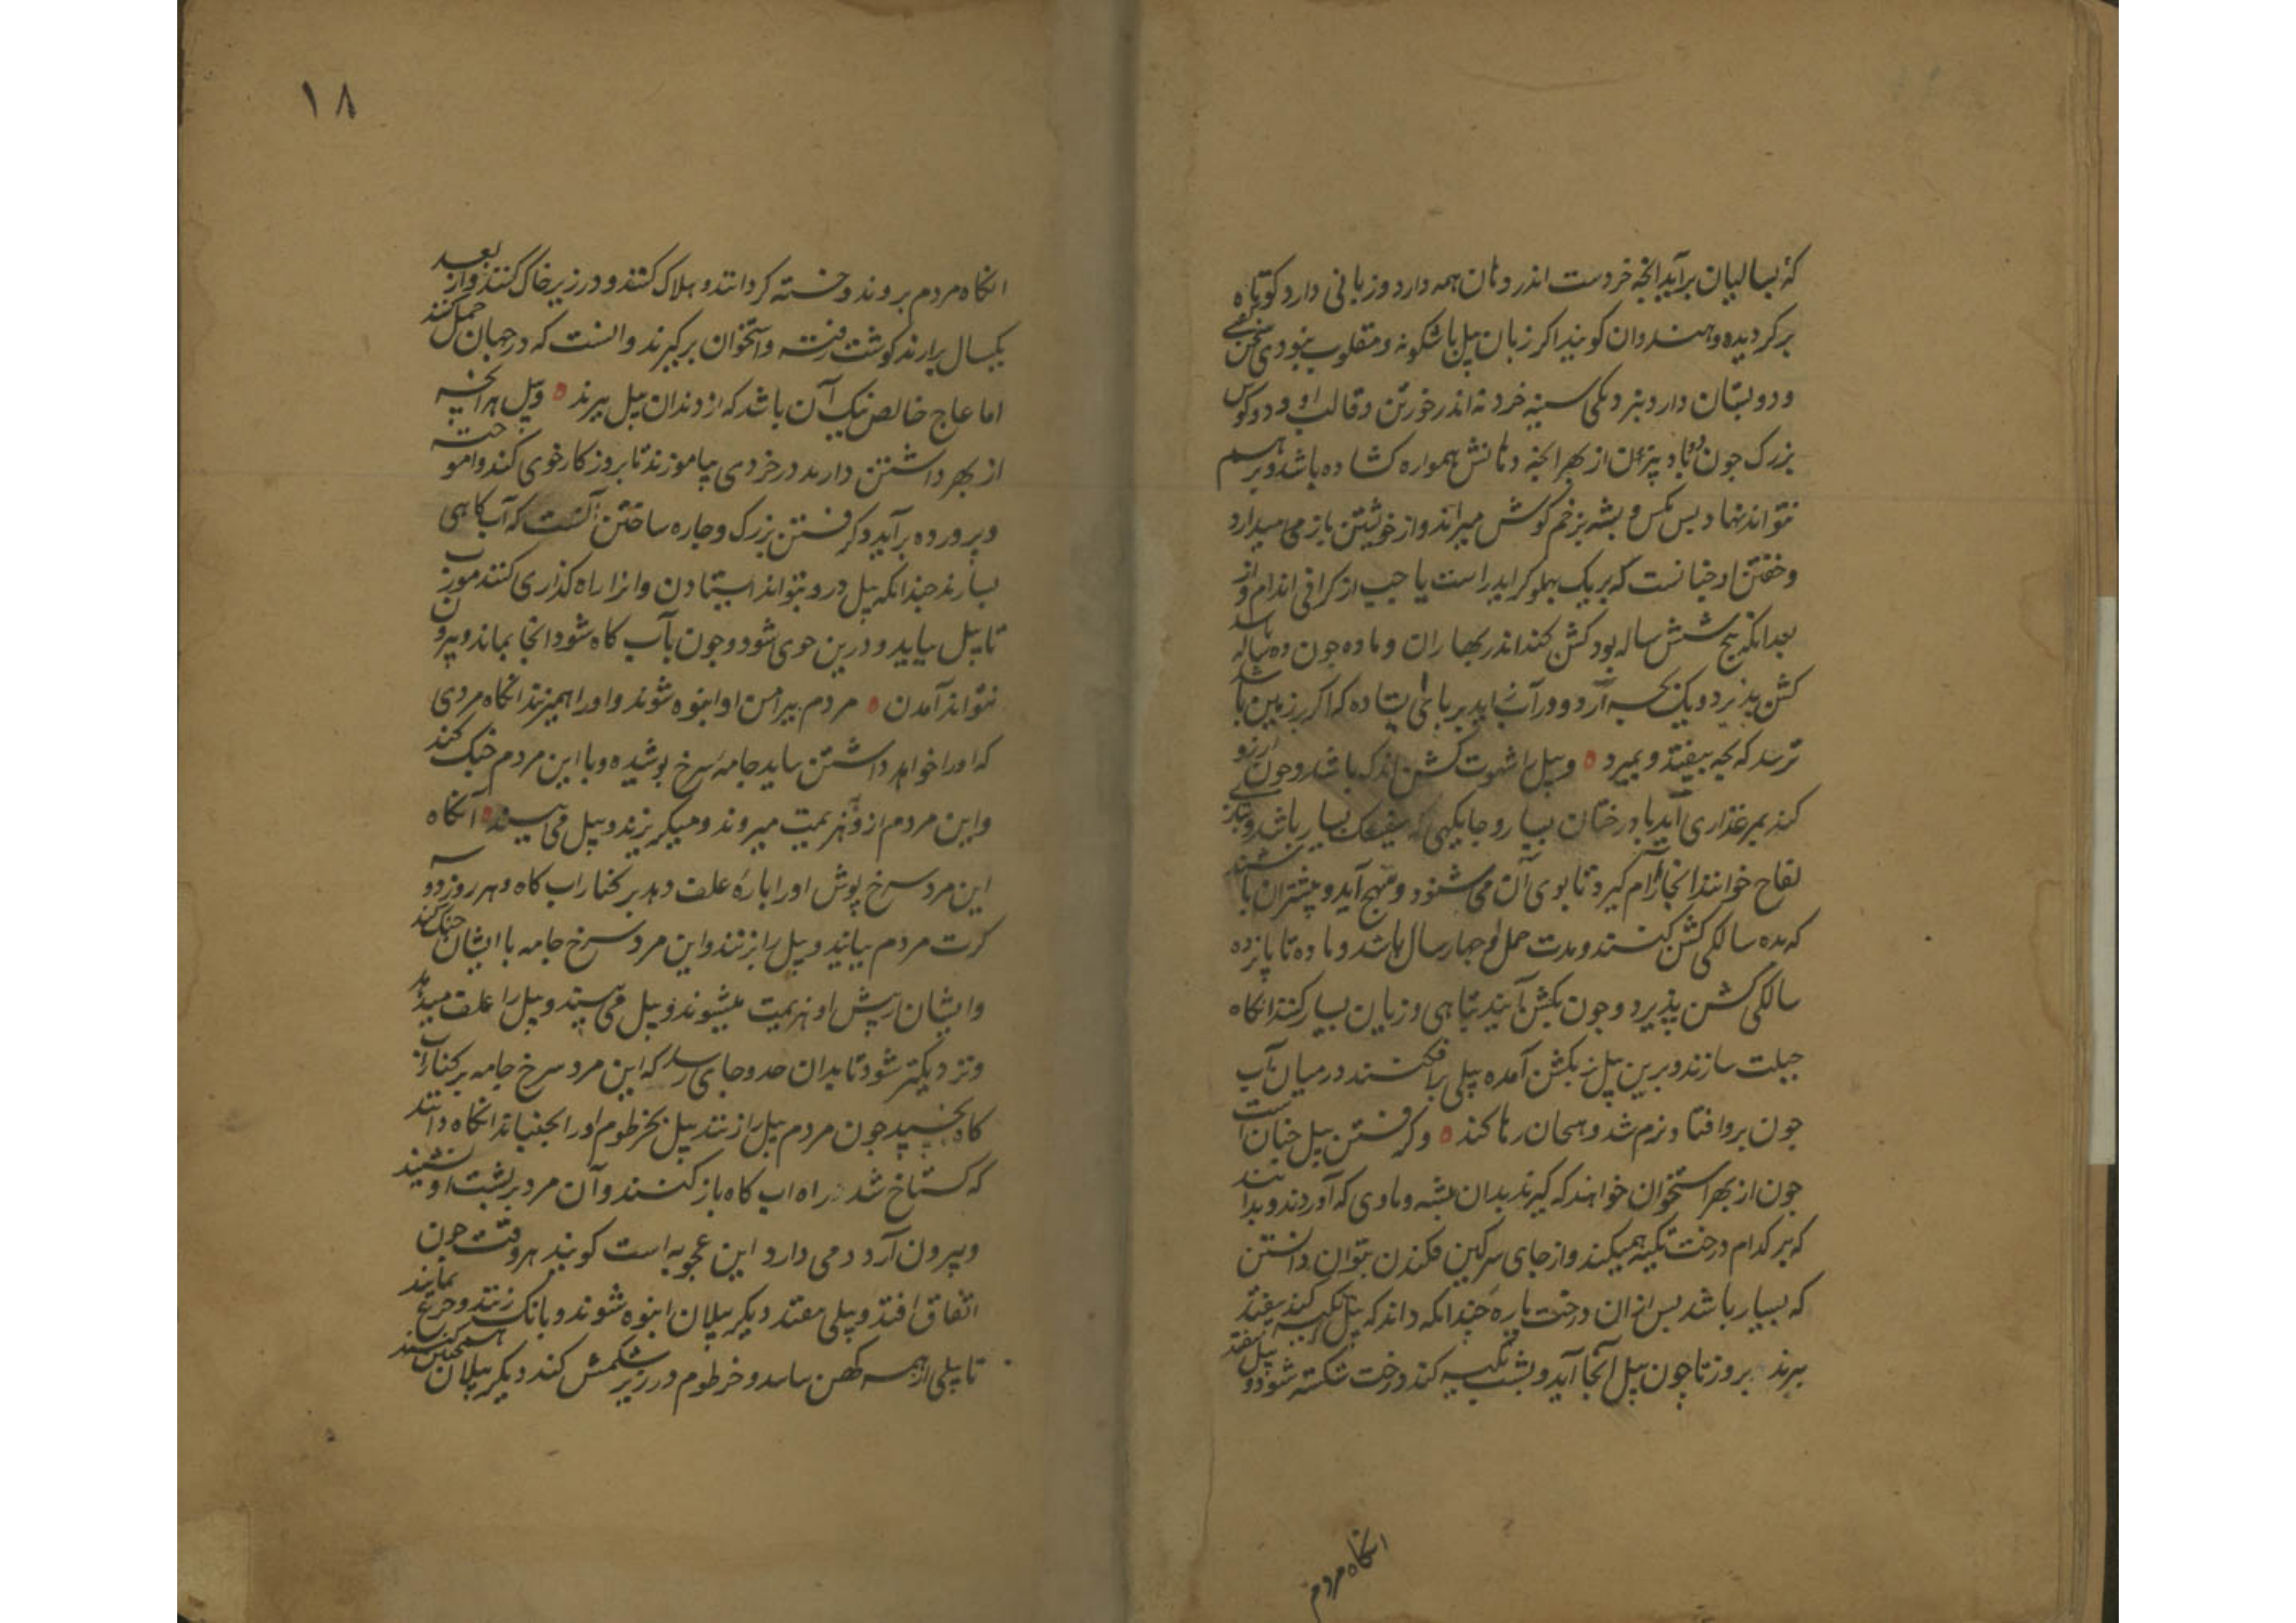 که بسالیان برآید انچه خردست اندر دهان همه دارد و زبانی دارد کوتاه
برکردیده و هندوان کویند اکر زبان پیل باشکونه و مقلوب نبودی سخن کفتی
و دو پستان دارد بنزدیکی سینه خرد نه اندر خورتن و قالب او و دو کوش
بزرک جون دو باد بیزن از بهر انچه دهانش همواره کشاده باشد و برهم
نتواند نهاد پس مکس و پشه بزخم کوش میراند و از خویشتن باز می میدارد
و خفتن او چنانست که بر یک پهلو کراید راست یا چپ از کرانی اندام و از
بعد انکه پنج شش ساله بود کشن کند اندر بهاران و ماده جون ده ساله باشد
کشن پذیرد و یک بچه آرد و در آب زاید بر پای ایستاده که اکر بر زمین باشد
ترسد که بچه بیفتد و بمیرد ه و پیل را شهوت کشن اندک باشد و جون آرزو
کند بمرغزاری آید با درختان بسیار و جایکهی که بسیار باشد و بتازی
لقاح خوانند انجا آرام کیرد تا بوی آن می شنود و مهیج آید و بیشتر آن باشند
که بده سالکی کشن کنند و مدت حمل او جهار سال باشد و ماده تا پانزده
سالکی کشن پذیرد و جون بکشن آیند تباهی و زیان بسیار کنند انکاه
حیلت سازند و برین پیل نر بکشن آمده پیلی را فکنند در میان آب
جون برو افتاد نرم شد و هیجان رها کند ه و کرفتن پیل چنان است
جون از بهر استخوان خواهند که کیرند بدان بیشه و ماوی که آوردند و بدانند
که بر کدام درخت تکیه همیکند و از جای سرکین فکندن بتوان دانستن
که بسیار باشد پس از ان درخت پاره چندانکه داند که پیل تکیه کند بیفتد
ببرند بروز تا چون پیل آنجا آید و بشب تکیه کند درخت شکسته شود و پیل بیفتد
انکاه مردم
۱۸
انکاه مردم بروند و خسته کردانند و هلاک کنند و در زیر خاک کنند و از بعد
یکسال برآرند کوشت رفته و استخوان برکیرند و انست که در جهان حمل کنند
اما عاج خالص نیک آن باشد که از دندان پیل ببرند ه و پیل هر انچه
از بهر داشتن دارند در خردی بیاموزند تا بروزکار خوی کند و آموخته
و پرورده برآید و کرفتن بزرک و چاره ساختن آنست که آب کاهی
بسازند چندانکه پیل درو بتواند ایستادن و انرا راه کذاری کنند
تا پیل بیاید و درین حوی شود و جون بآب کاه شود انجا بماند و بیرون
نتواند آمدن ه مردم پیرامن او انبوه شوند و او را همیزنند انکاه مردی
که او را خواهد داشتن بیاید جامه سرخ پوشیده و با این مردم جنک کند
و این مردم ازو بهزیمت میروند و میکریزند و پیل می بیند ه آنکاه
این مرد سرخ پوش او را پاره علف دهد بر کنار آب کاه و هر روز دو سه
کرت مردم بیایند و پیل را بزنند و این مرد سرخ جامه با ایشان جنک کند
و ایشان از پیش او هزیمت میشوند و پیل می بیند و پیل را علف میدهد
و نزدیکتر شود تا بدان حد و جای رسد که این مرد سرخ جامه بر کنار آب
کاه بخسپد جون مردم پیل را زنند پیل بخرطوم او را بجنباند انکاه دانند
که کستاخ شد راه آب کاه باز کنند و آن مرد بر پشت او نشیند
و بیرون آرد و می دارد این عجوبه است کویند هر وقت جون
اتفاق افتد و پیلی بیفتد دیکر پیلان انبوه شوند و بانک زنند و جزع نمایند
تا پیلی از همه کهن بیاید و خرطوم در زیر شکمش کند دیکر پیلان همچنین کنند